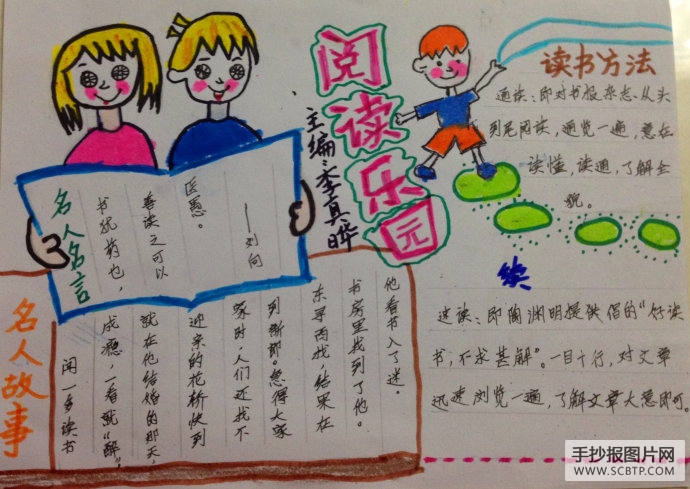 阅读乐园
主编:李真晔
名人名言
书犹药也,
善读之可以
医愚。
——刘向
名人故事
闻一多读书
成瘾,一看就“醉”,
就在他结婚的那天,
迎亲的花轿快到
家时,人们还找不
到新郎。急得大家
东寻西找,结果在
书房里找到了他。
他看书入了迷。
读书方法
通读:即对书报杂志,从头
到尾阅读,通览一遍,意在
读懂,读通,了解全
貌。
续
速读:即陶渊明提供倡的“好读
书,不求甚解”。一目十行,对文章
迅速浏览一遍,了解文章大意即可。
手抄报图片网
WWW.SCBTP.COM